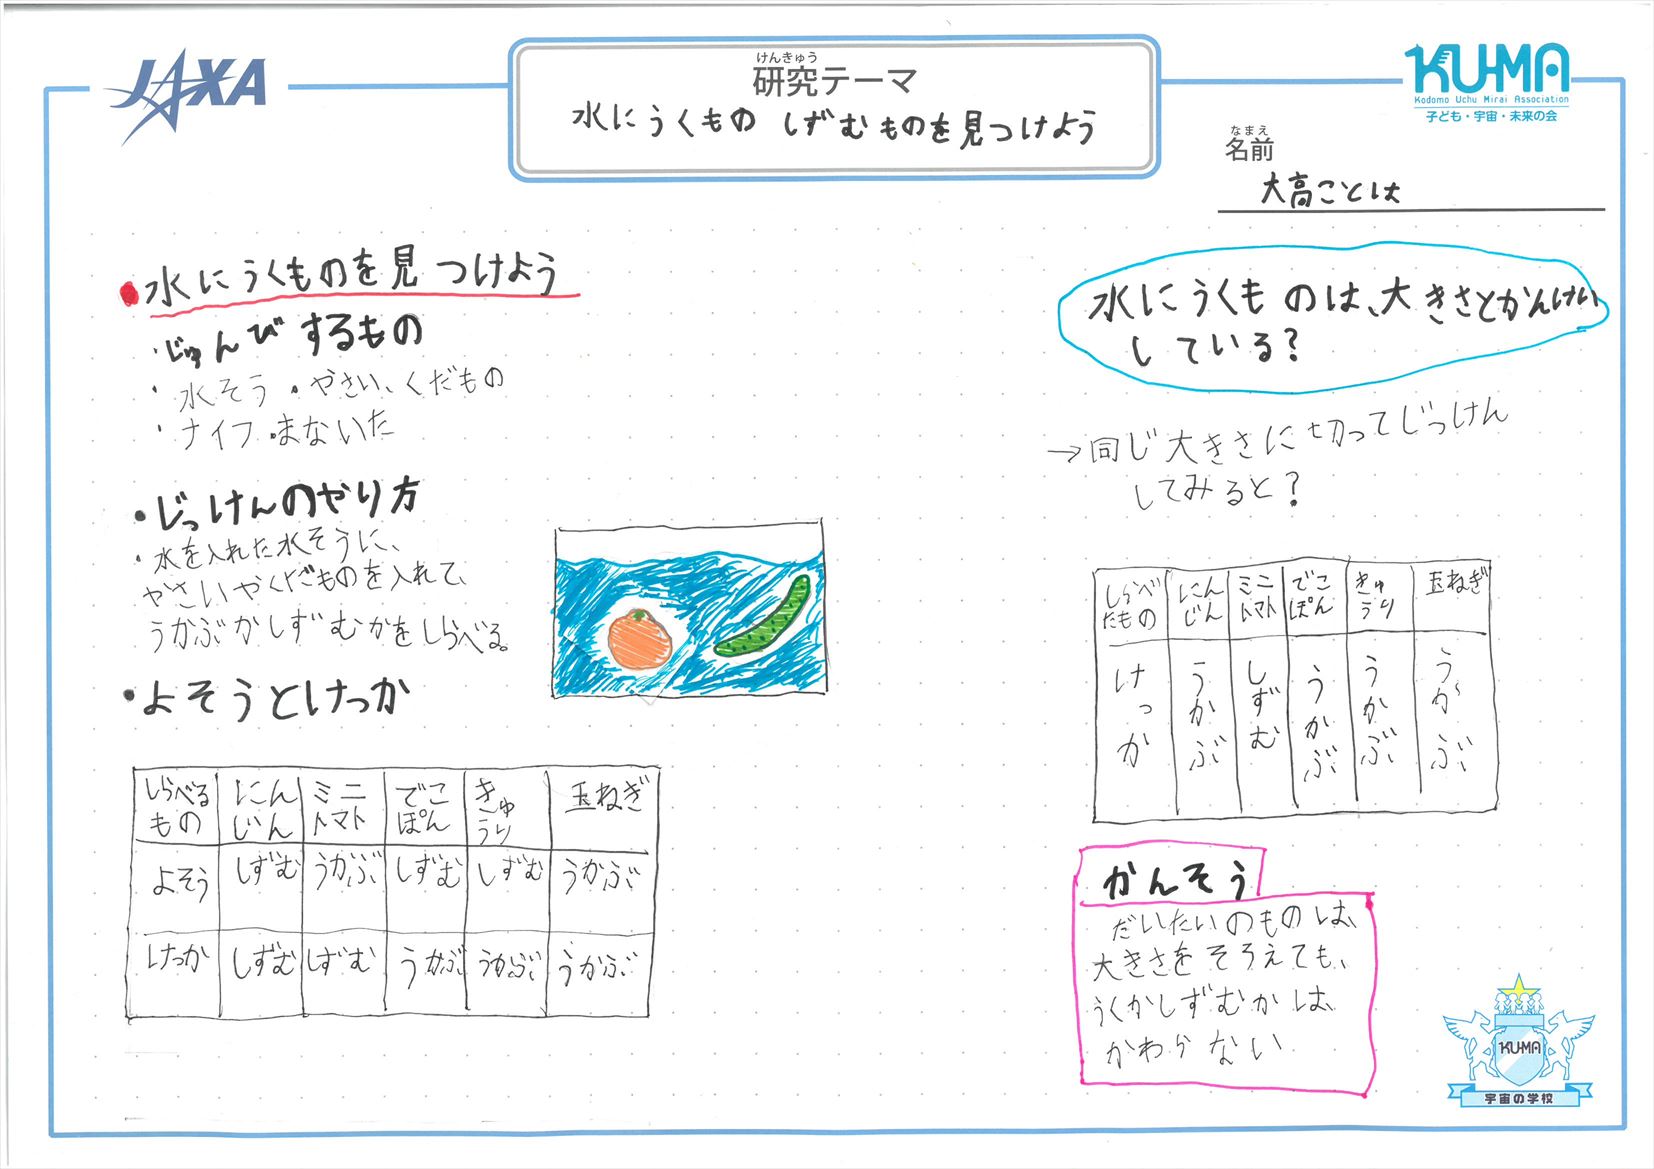 JAXA
けんきゅう
研究テーマ
水にうくもの しずむものを見つけよう
KU-MA
Kodomo Uchu Mirai Association
子ども・宇宙・未来の会
なまえ
名前
大高ことは
●水にうくものを見つけよう
・じゅんびするもの
・水そう ・やさい、くだもの
・ナイフ ・まないた
・じっけんのやり方
・水を入れた水そうに、
やさいやくだものを入れて、
うかぶかしずむかをしらべる。
・よそうとけっか
しらべるもの にんじん ミニトマト でこぽん きゅうり 玉ねぎ
よそう しずむ うかぶ しずむ しずむ うかぶ
けっか しずむ しずむ うかぶ うかぶ うかぶ
水にうくものは、大きさとかんけい
している?
→同じ大きさに切ってじっけん
してみると?
しらべたもの にんじん ミニトマト でこぽん きゅうり 玉ねぎ
けっか うかぶ しずむ うかぶ うかぶ うかぶ
かんそう
だいたいのものは、
大きさをそろえても、
うくかしずむかは、
かわらない
KU-MA
宇宙の学校